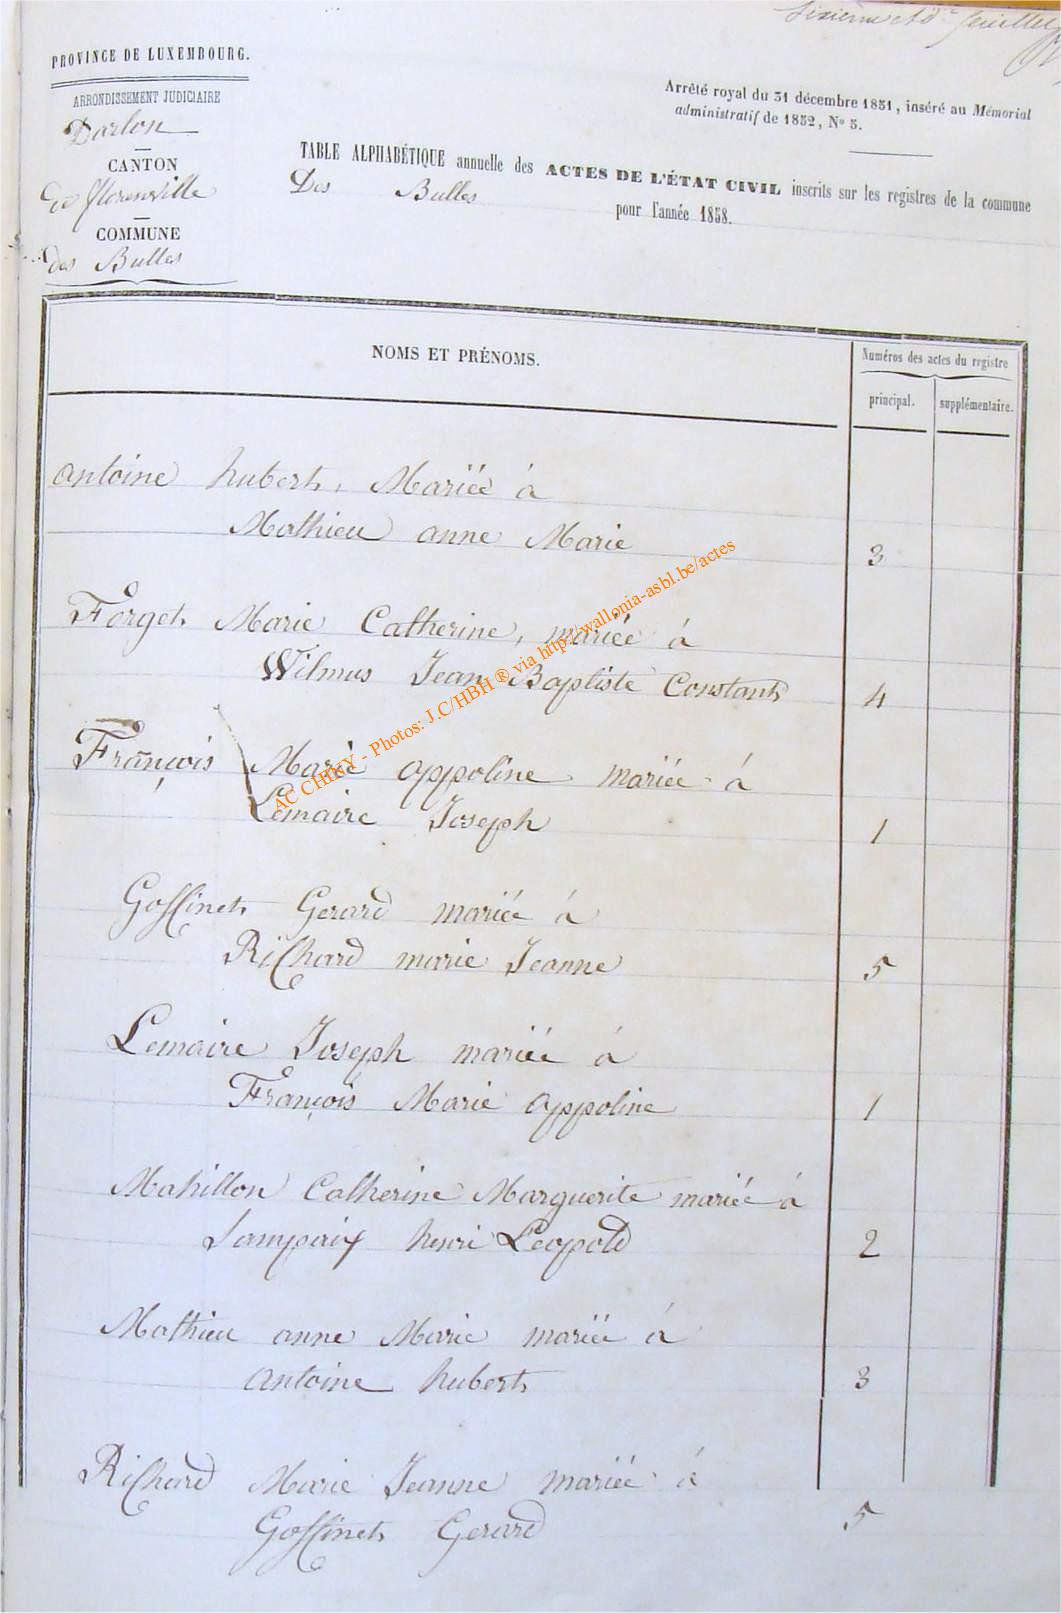 Sixième et d feuillet
PROVINCE DE LUXEMBOURG.
ARRONDISSEMENT JUDICIAIRE
Darlon
CANTON
De florenville
COMMUNE
des Bulles
Arrêté royal du 31 décembre 1851, inséré au Mémorial
administratif de 1852, No 5.
TABLE ALPHABÉTIQUE annuelle des ACTES DE L'ÉTAT CIVIL inscrits sur les registres de la commune
Des Bulles pour l'année 1858.
NOMS ET PRÉNOMS.
Numéros des actes du registre
principal. supplémentaire.
antoine hubert, Mariée à
Mathieu anne Marie 3
Forget Marie Catherine, mariée à
Wilmus Jean Baptiste Constant 4
François Marie appoline mariée à
Lemaire Joseph 1
Goffinet Gerard mariée à
Richard marie Jeanne 5
Lemaire Joseph mariée à
François Marie appoline 1
Mahillon Catherine Marguerite mariée à
Lampaix henri Leopold 2
Mathieu anne Marie mariée à
antoine hubert 3
Richard Marie Jeanne mariée à
Goffinet Gerard 5
AC CHINY - Photos: J.C/HBH ® via http://wallonia-asbl.be/actes